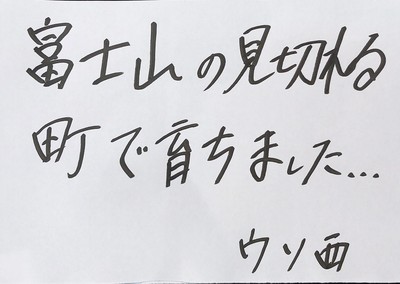 富士山の見切れる
町で育ちました…
ウソ西